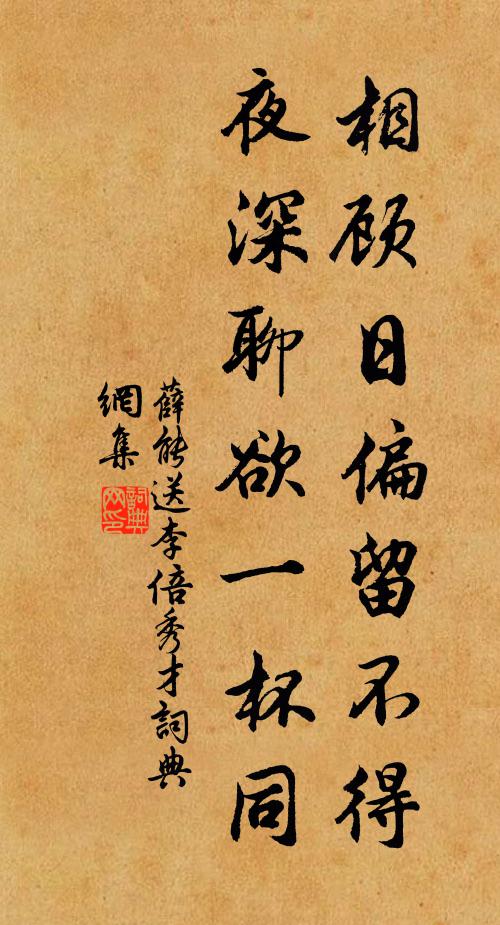 相顾日偏留不得
夜深聊欲一杯同
薛能送李倍秀才詞典
網集
詞典
网印